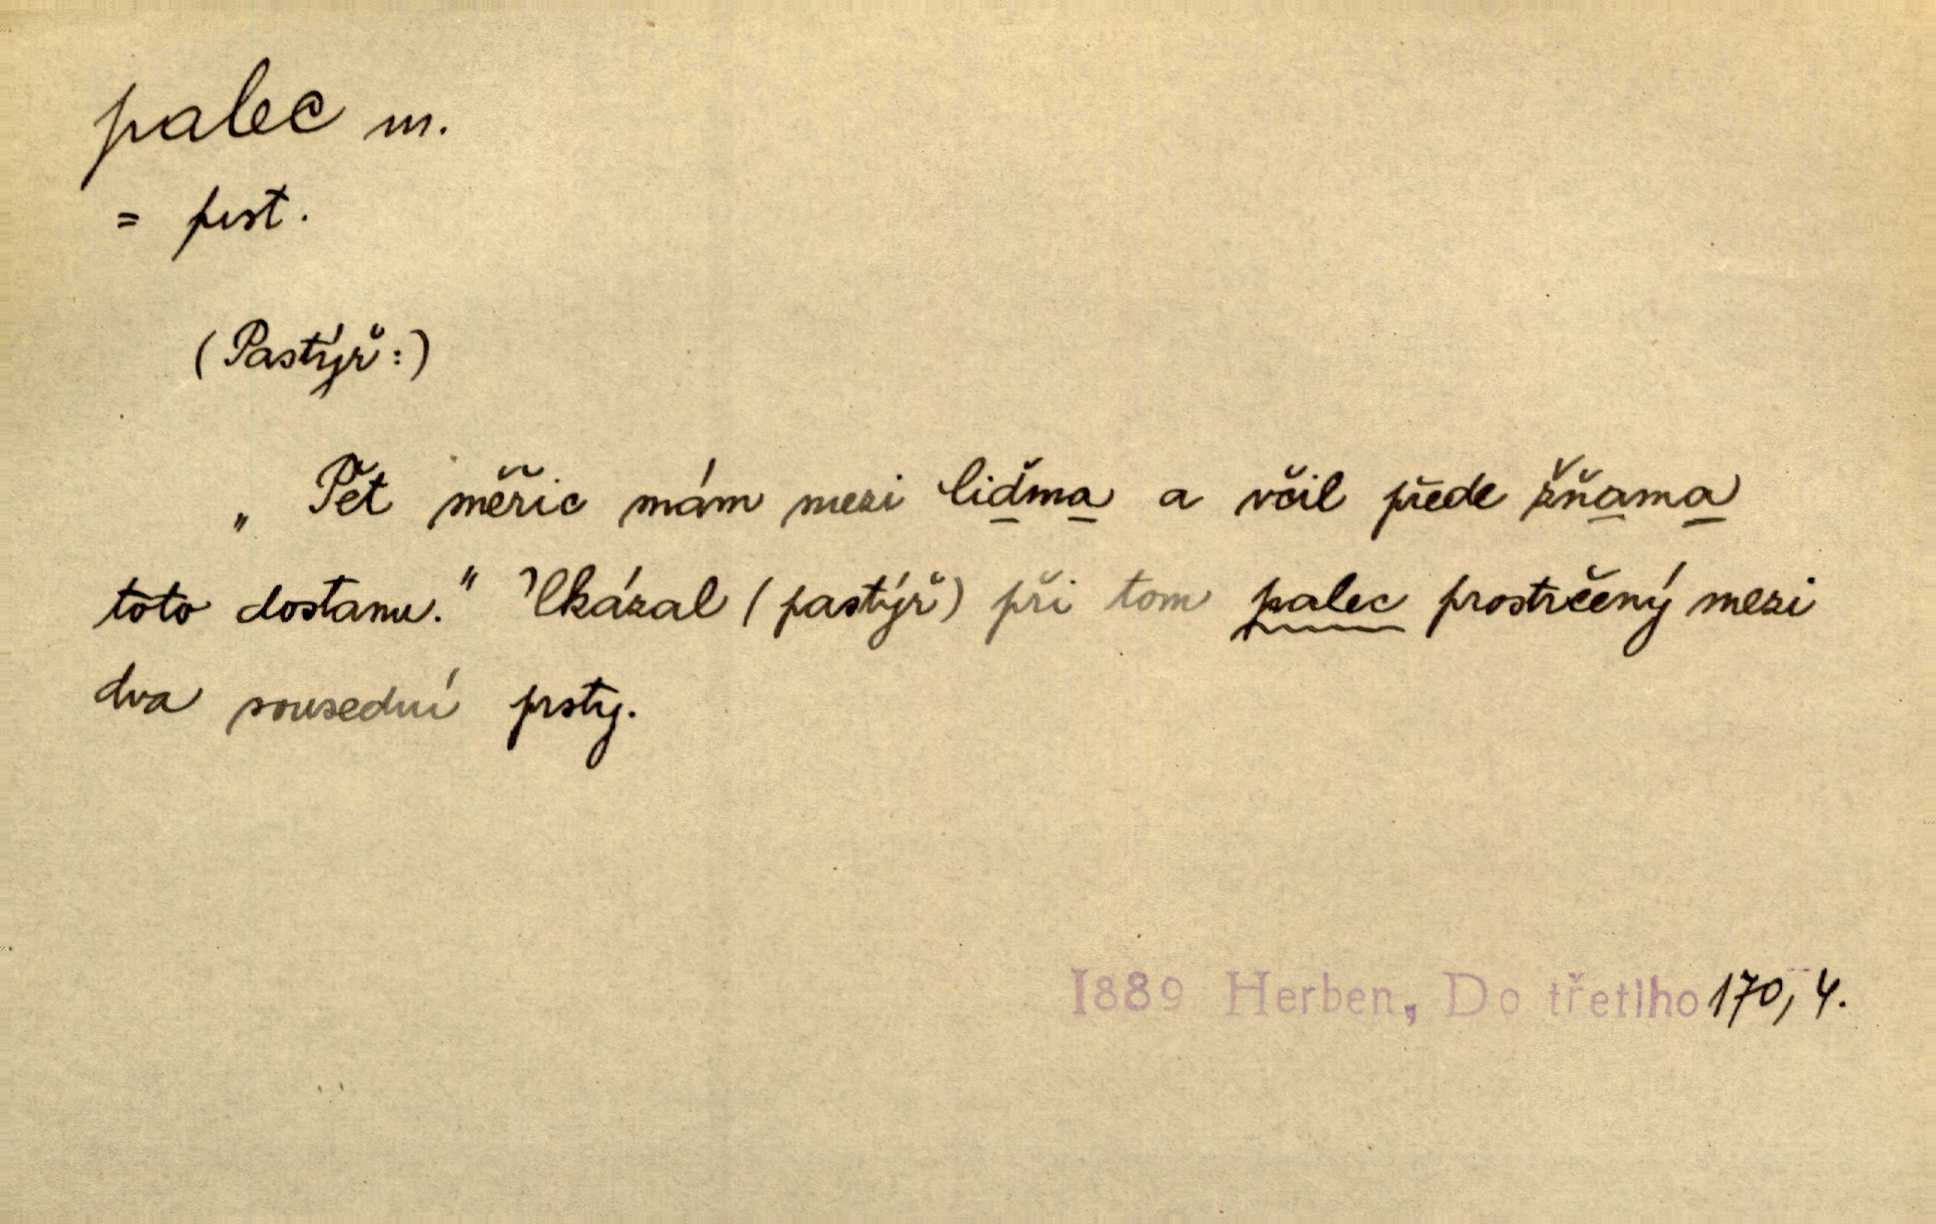 palec m.
= prst.
(Pastýř:)
„Pět měřic mám mezi liďma a včil přede žňama
toto dostanu." Ukázal (pastýř) při tom palec prostrčený mezi
dva sousední prsty.
1889 Herben, Do třetího 170,4.